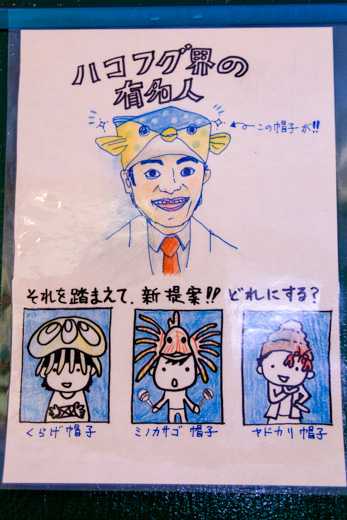 ハコフグ界の
有名人
この帽子が!!
それを踏まえて、新提案!! どれにする?
くらげ帽子
ミノカサゴ帽子
ヤドカリ帽子